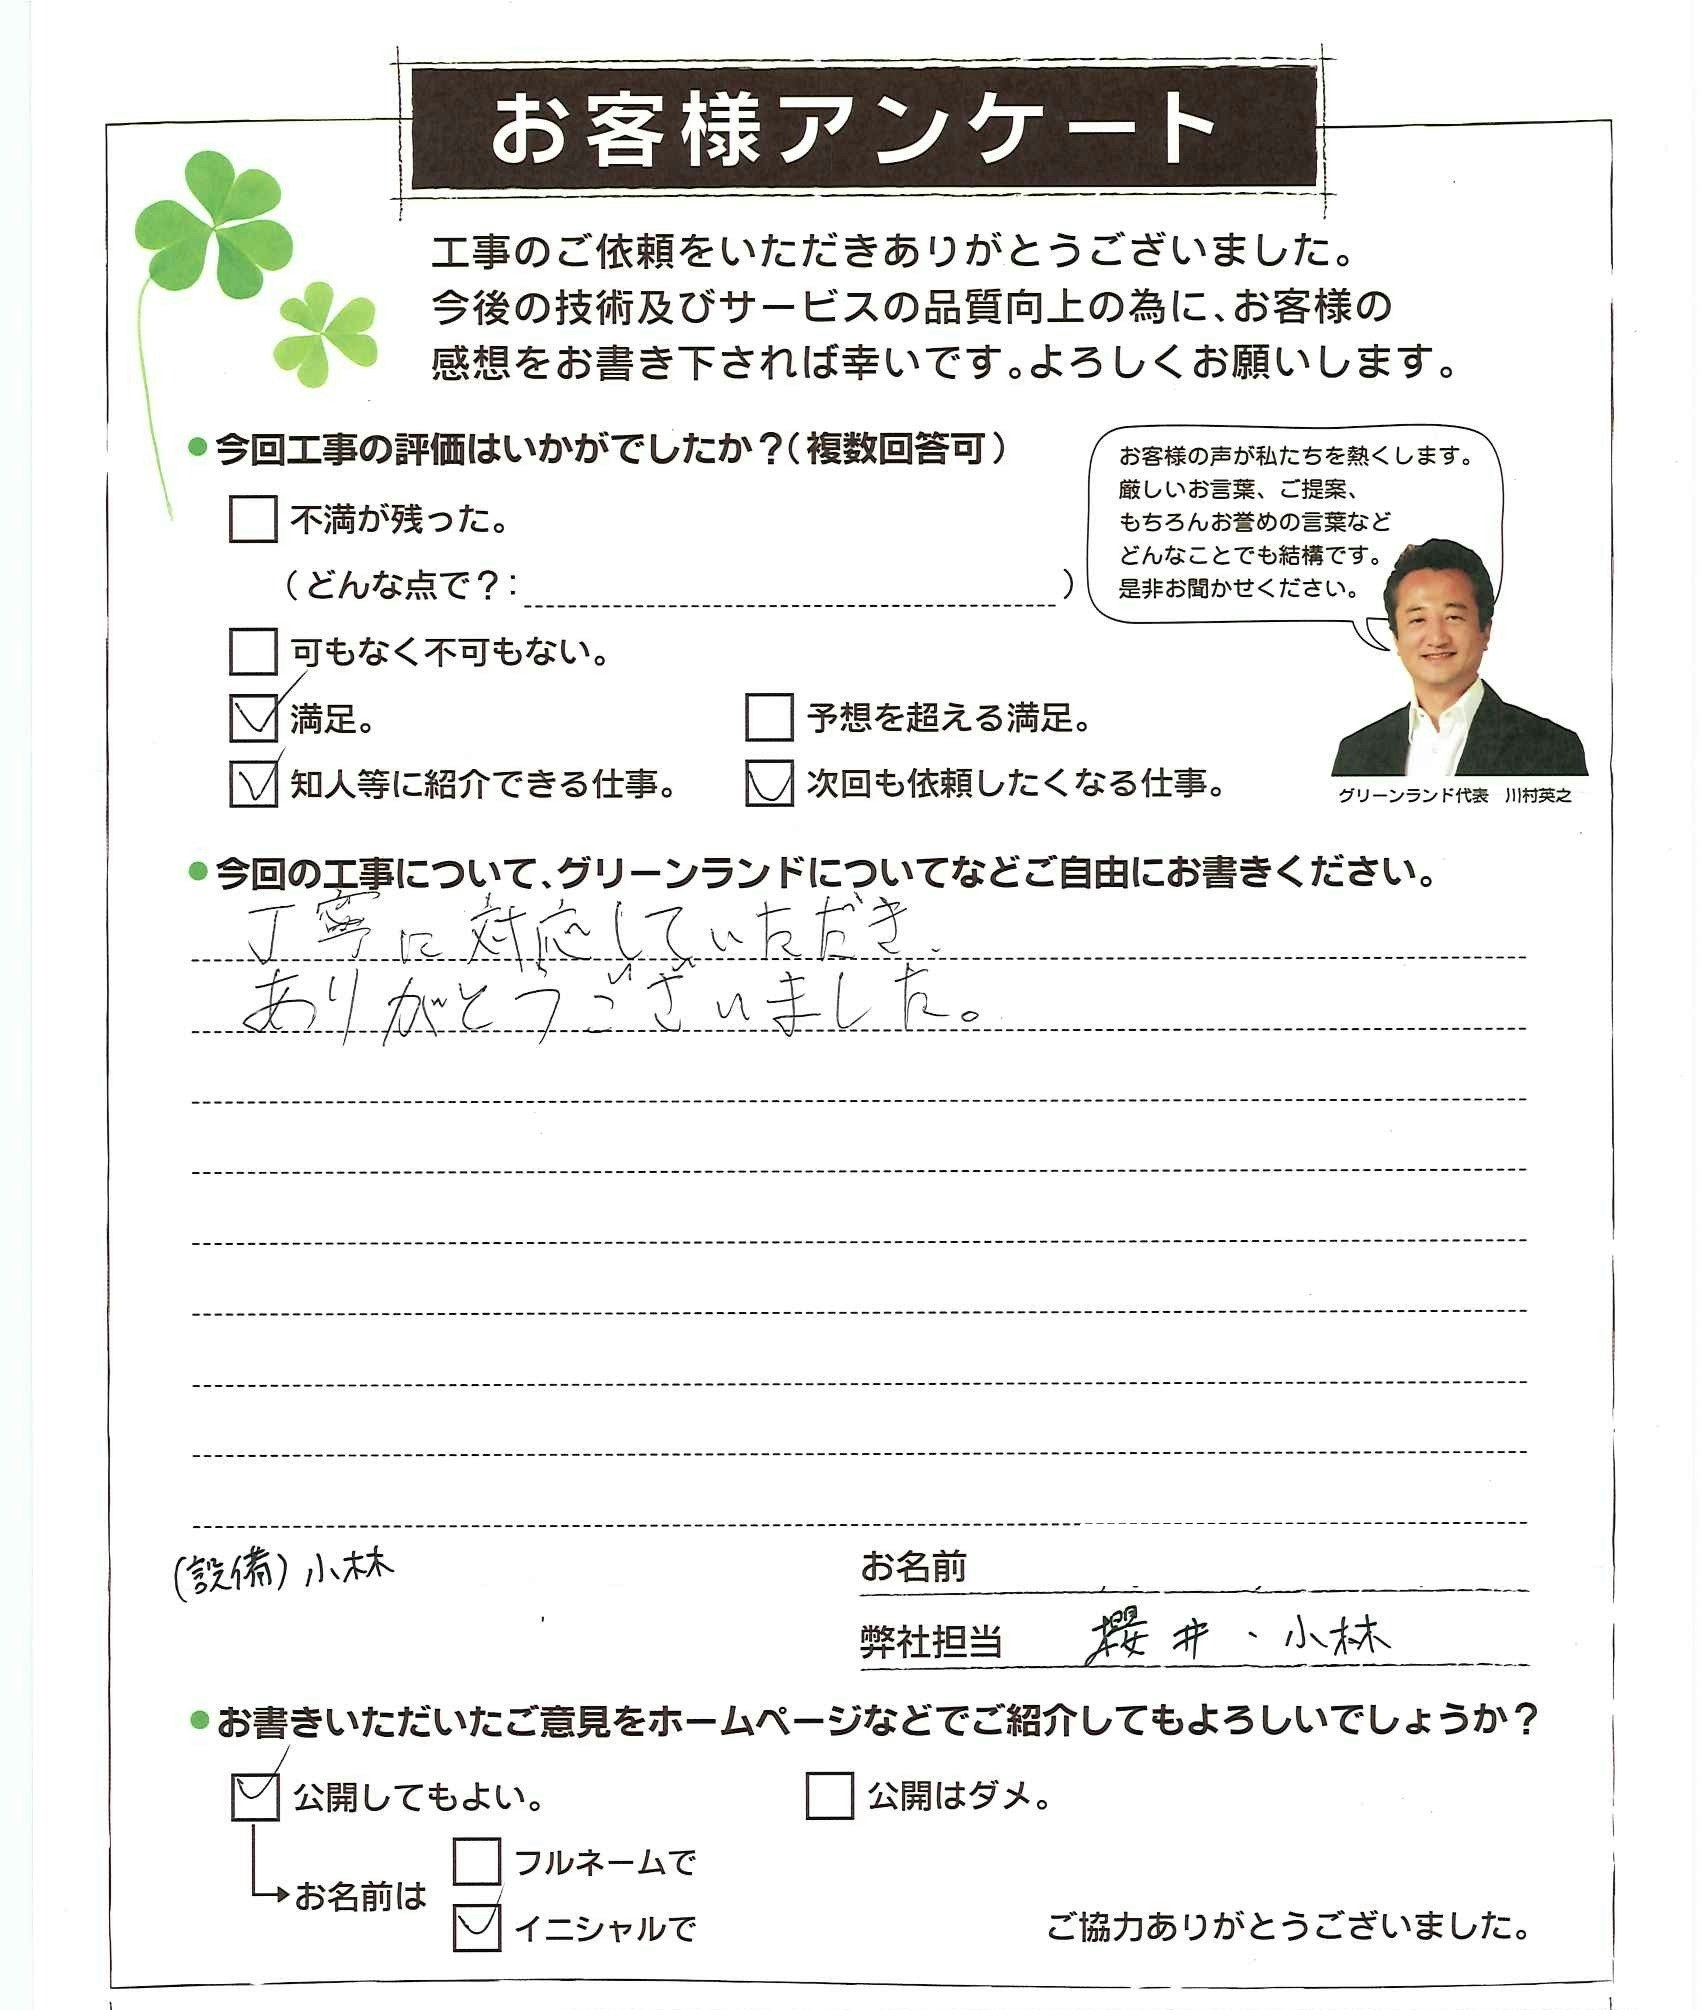 お客様アンケート
工事のご依頼をいただきありがとうございました。
今後の技術及びサービスの品質向上の為に、お客様の
感想をお書き下されば幸いです。よろしくお願いします。
●今回工事の評価はいかがでしたか？（複数回答可）
お客様の声が私たちを熱くします。
厳しいお言葉、ご提案、
もちろんお誉めの言葉など
どんなことでも結構です。
是非お聞かせください。
グリーンランド代表 川村英之
不満が残った。
（どんな点で？： ）
可もなく不可もない。
満足。 予想を超える満足。
知人等に紹介できる仕事。 次回も依頼したくなる仕事。
●今回の工事について、グリーンランドについてなどご自由にお書きください。
丁寧に対応していただき、
ありがとうございました。
(設備)小林
お名前
弊社担当 櫻井、小林
●お書きいただいたご意見をホームページなどでご紹介してもよろしいでしょうか？
公開してもよい。 公開はダメ。
お名前は
フルネームで
イニシャルで
ご協力ありがとうございました。